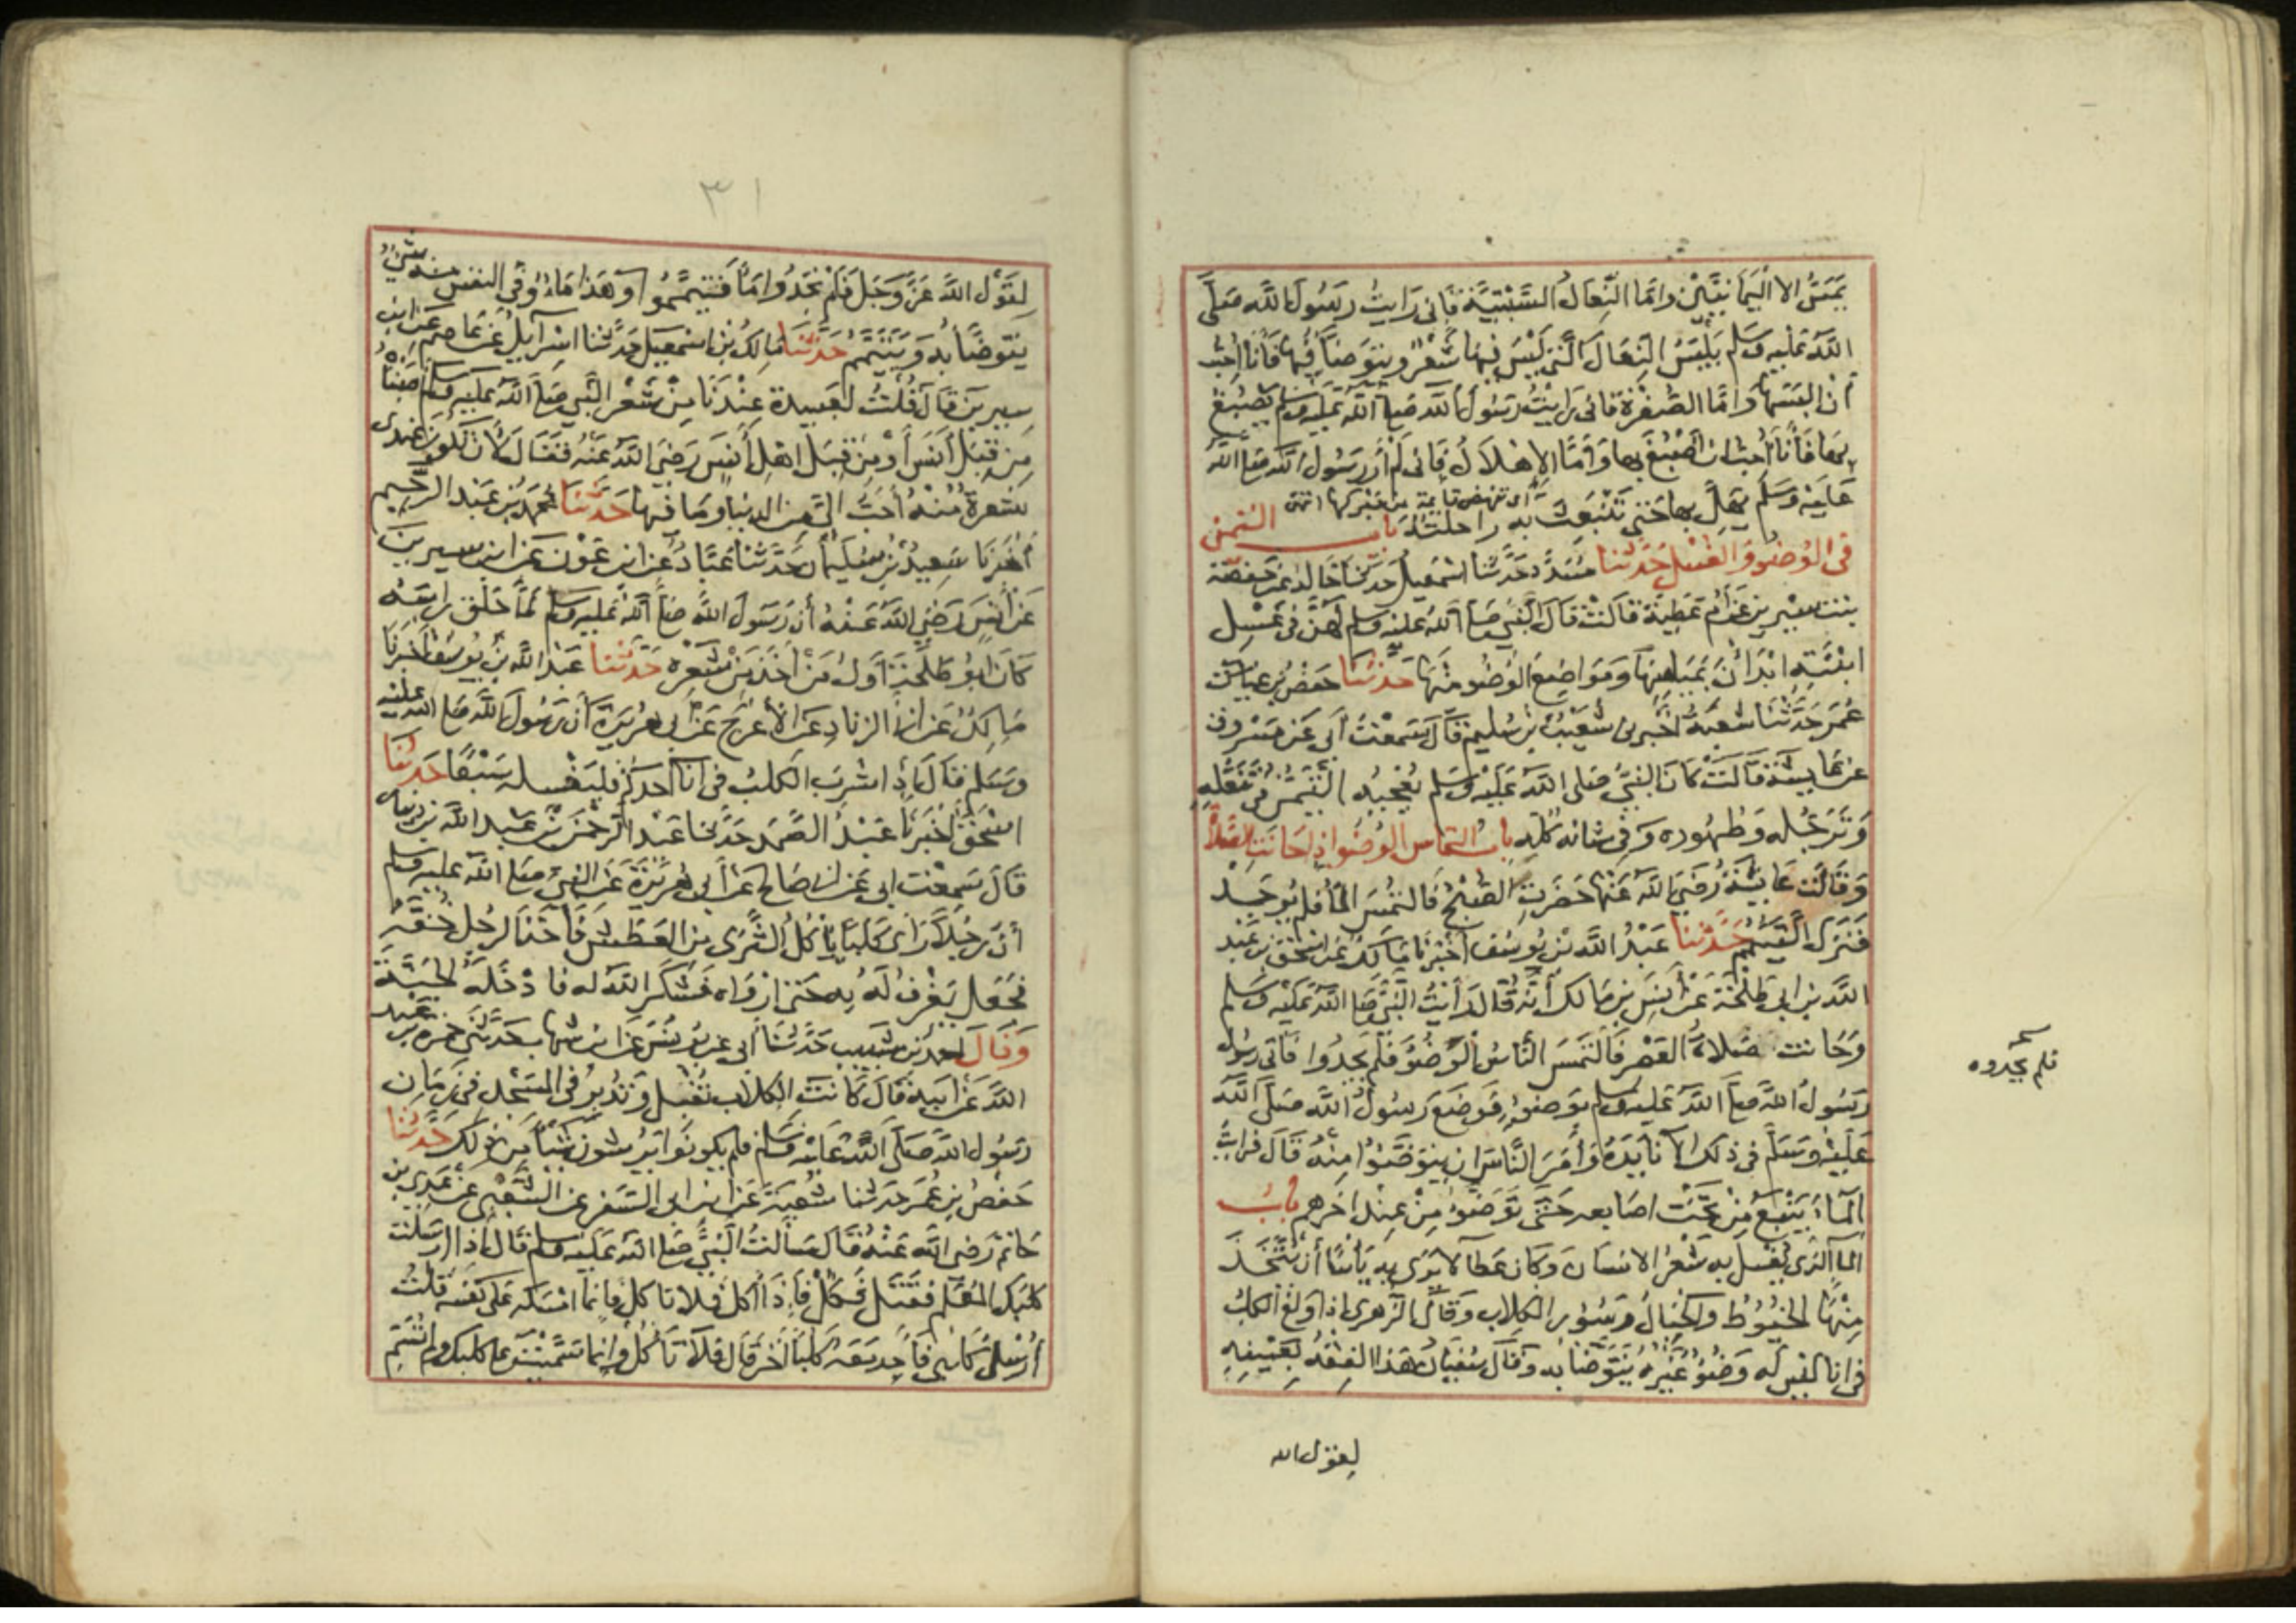 يَمَسُّ الا اليَمَانيَيْنِ وامَّا النِّعَالُ السِّبْتِيَّة فَاني رَايتُ رسُولَ الله صَلَّى
اللَّه عَليْهِ وسَلم يَلْبَسُ النِعَالَ الَّتي لَيْسَ فِيهَا شَعْرٌ ويتوَضأ فِيها فَأنا احِبُّ
أن البَسَهَا وامَّا الصُّفْرَة فاني رَايْتُ رَسُولَ الله صَلى اللَّه عَليْه وسلم يَصْبغُ
بهَا فَأنَا أحِبُّ ان اصْبُغَ بهَا وَامَّا الإهْلاَلُ فَاني لَمْ أرَ رسُولَ الله صَلى الله
عَليْه وسَلم يُهِلُّ بهَا حَتى تَنْبَعِثَ به راحلته باب التيمن
في الوُضُو وَالغُسْلِ حَدَّثنا مسَدَّد حَدَّثنا اسْمَعيل حَدثنا خَالد عَن حَفْصَة
بنت سيْرين عَن أم عَطيَّة قالتْ قَالَ النَّبي صَلى اللَّه عَليْه وسلم لَهُنَّ في غَسْلِ
ابْنَتِهِ ابْدَأنَ بمَيَامِنِهَا وَمَوَاضِعِ الوُضُو مِنْهَا حَدَّثنَا حَفصُ بن
عُمَر حَدَّثنَا شُعْبَة اخْبرني شعَيْبُ بن سُليْم قَالَ سَمِعْتُ ابي عَن مَسْروق
عن عَايشَة قالَتْ كَانَ النَّبيُّ صَلى اللَّه عَليْه وسَلم يُعْجِبُه التَّيَمُّنُ في تَنَعُّلِهِ
وَتَرَجُّله وَطهُوره وَفي شانه كُله باب التماس الوُضُو اذا حَانَتِ الصَّلاَةُ
وَقالَت عَايشَة رَضيَ اللَّه عَنْهَا حَضَرَتِ الصُّبْحُ فَالتُمِسَ المَآ فلَم يُوجَدْ
فَنَزَلَ التَّيَمُّم حَدَّثنا عَبْدُ اللَّه بْن يُوسُف اخْبَرنَا مَالك عَن اسْحَق بْن عَبْد
اللَّه بْن ابي طَلْحَة عَنْ أنَسِ بنِ مَالك أنَّه قَالَ رَأيْتُ النَّبيَّ صَلى اللَّه عَليْه وسَلم
وَحَانت صَلاَةُ العَصْر فَالتَمَسَ النَّاسُ الوَضُوءَ فلَمْ يَجِدُوا فَاتي رسُول
رَسُولُ اللَّه صَلى اللَّه عَليْه وسلم بوَضُوءٍ فَوَضَعَ رسُولُ اللَّه صَلَّى اللَّه
عَليْه وسَلَّم في ذلكَ الانَا يَدَهُ وَأمَرَ النَّاسَ ان يتَوَضَّئوا مِنْهُ قَالَ فرايْتُ
المَآءَ يَنْبُعُ مِنْ تَحْتِ اصَابعه حَتَّى تَوَضئوا مِنْ عِنْدِ اخرهم بابُ
المآ الذي يُغْسَلُ به شَعْرُ الانسَان وَكان عَطآ لا يَرى به بَأسًا أن يُتَّخَذَ
مِنْهَا الخُيُوطُ وَالحِبَالُ وَسُؤْر الكِلاب وَقالَ الزهري اذا وَلَغَ الكلبُ
في انا ليْسَ له وَضُوءٌ غَيْرُهُ يَتَوَضأ به وقالَ سُفيَان هَذا الفِقْهُ بعَيْنِهِ
فلم يجدوه
لقول الله
٣١
لِقَوْلِ اللَّه عَزَّ وَجَلَ فَلَمْ تجدُوا مَآءً فَتَيمَّمُوا وَهَذا مَآءٌ وفي النفس منه شيْءٌ
يتوَضأ به وَيَتَيَمَّمُ حَدَّثنَا مَالِكُ بْنُ اسْمَعيل حَدَّثنَا اسْرَآيل عَن عَاصِم عَن ابن
سيرينَ قَالَ قُلْتُ لعَبِيدَةَ عِنْدَنَا مِنْ شَعْرِ النَّبي صَلى اللَّه عَليْه وسلم اصَبْنَاهُ
مِن قِبَلِ أنَس أوْ مِن قِبَلِ اهْلِ أنَس رَضِيَ اللَّه عَنْهُ فَقَالَ لأن تَكُون عِنْدي
شَعْرَةٌ مِنْهُ أحَبُّ اليَّ مِنَ الدنيَا وَمَا فيهَا حَدَّثَنَا مُحمَّد بْن عَبْد الرَّحيم
أخْبَرنَا سَعِيدُ بْنُ سُليمَان حَدَّثنَا عَبَّادُ عَن ابن عَوْن عَن ابن سيرينَ
عَنْ أنَس رَضيَ اللَّه عَنْهُ أنَّ رسُولَ اللَّه صَلى اللَّه عَليْه وسلم لمَّا حَلَق رَاسَهُ
كَانَ أبُو طَلْحَة أوَّلُ مَنْ أخَذَ مِنْ شَعْرِه حَدَّثنا عَبْدُ اللَّه بْن يُوسُفَ أخْبرنَا
مَالِكُ عَن ابي الزناد عَن الأعْرَج عَن أبي هُريْرَة أنَّ رسُولَ اللَّه صَلى اللَّه عَليْه
وسَلم قالَ إذَا شَربَ الكلبُ في انَآء أحَدِكُم فليَغْسله سَبْعًا حَدثنَا
اسْحَقُ أخْبَرنَا عَبْدُ الصَّمَد حَدَّثنَا عَبْد الرَّحْمَن بْن عَبْد اللَّه بن دينار
قَالَ سَمِعْت ابي عَن ابي صَالح عَن أبي هُريْرَة عَن النَّبيّ صَلى اللَّه عليْه وسلم
أنَّ رَجُلاً رَأى كَلبًا يَأكُلُ الثَّرَى مِنَ العَطَش فَأخَذَ الرجُل خُفَّهُ
فجَعَل يَغْرِفُ لَهُ بِهِ حَتى ارْوَاه فشَكَرَ اللَّه له فادْخَلَهُ الجَنَّةَ
وَقالَ احمَد بْن شَبيب حَدَّثنَا أبي عَن يُونُسَ عَن ابن شهَاب حَدَّثني حمزه بن عبد
اللَّه عَن أبيه قَالَ كانَتِ الكِلاب تُقْبِلُ وتُدْبِرُ في المَسْجد في زَمَان
رَسُول اللَّه صَلَّى اللَّه عَليْه وسَلم فلم يكونُوا يَرُشُّونَ شَيْئًا مِن ذلكَ حَدَّثنا
حَفصُ بْن عُمَر حَدثنا شُعْبَة عَن ابن ابي السَّفَر عَن الشَّعْبي عَن عَدِي بن
حَاتم رَضِي اللَّه عَنْهُ قَالَ سَألتُ النَّبيَّ صَلى اللَّه عَليْه وسلم قَالَ إذا ارْسَلت
كلبَكَ المُعَلَّم فقَتَلَ فَكُلْ فَإِذَا أكَلَ فَلا تَاكل فَإنمَا امْسَكَه عَلى نَفْسِه قُلتُ
أُرْسِلُ كَلبي فَأجِد مَعَه كَلبًا آخَر قَال فَلاَ تَأكُلْ وَانمَا سَمَّيْتَ عَلى كلبِكَ ولَم تُسَمِّ